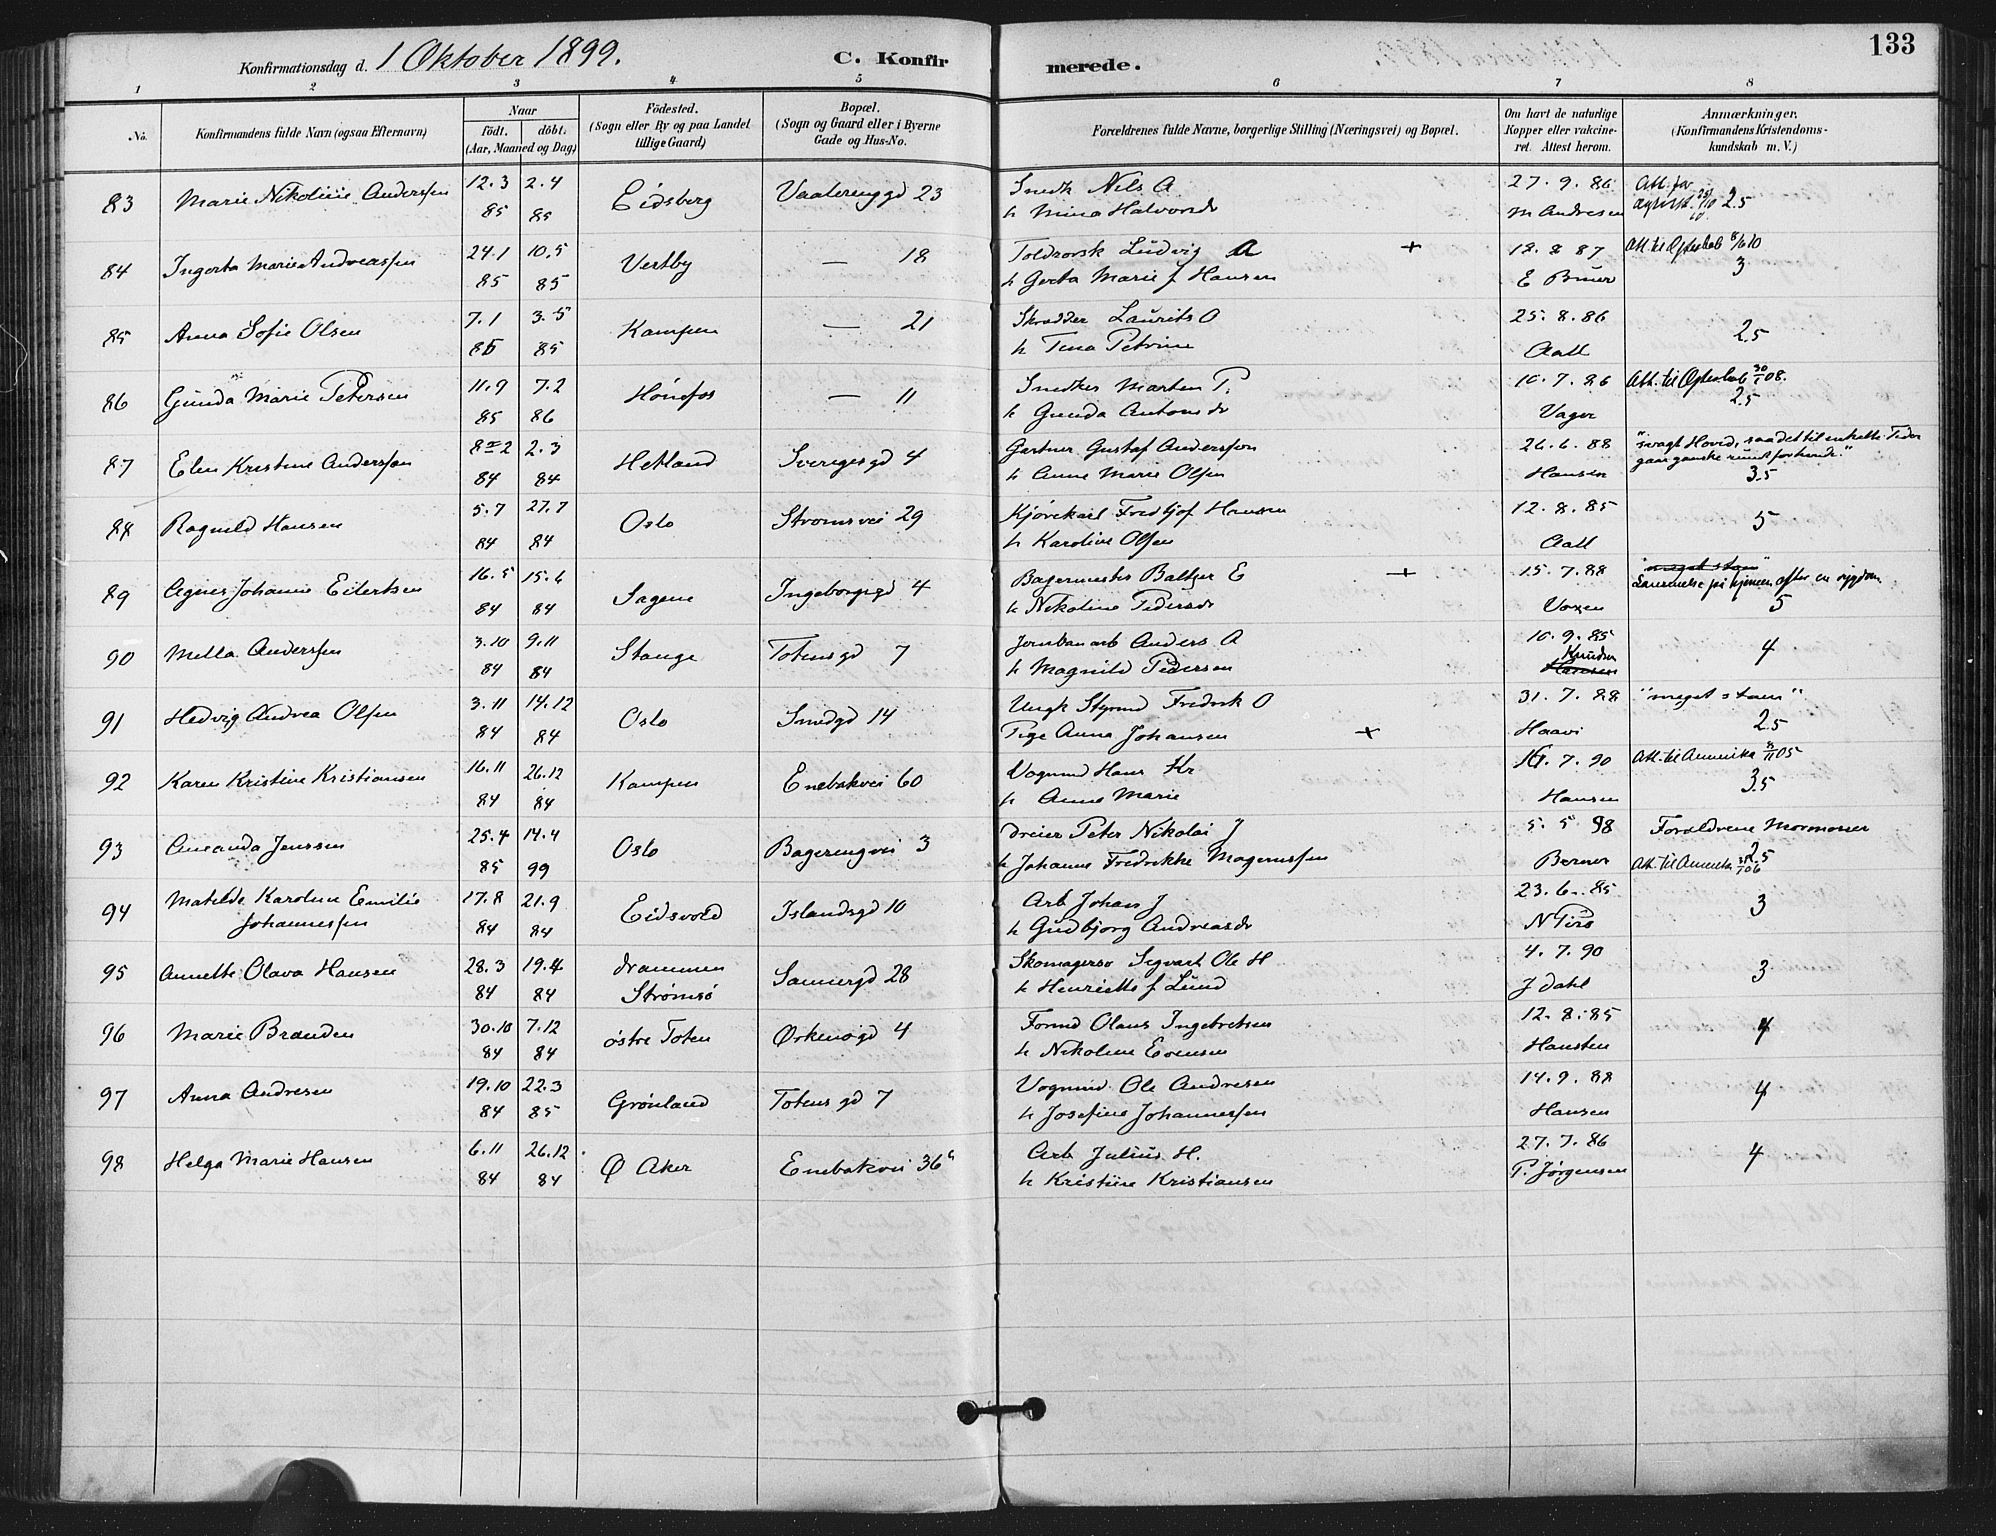 Konfirmationsdag d. 1 Oktober 1899. C. Konfirmerede. 133
1 2 3 4 5 6 7 8
No. Konfirmandens fulde Navn (ogsaa Efternavn) Naar födt. döbt. (Aar, Maaned og Dag) Födested. (Sogn eller By og paa Landet tillige Gaard) Bopæl. (Sogn og Gaard eller i Byerne Gade og Hus-No. Forældrenes fulde Navne, borgerlige Stilling (Næringsvei) og Bopæl. Om havt de naturlige Kopper eller vakcineret. Attest herom. Anmærkninger. (Konfirmandens Kristendomskundskab m. V.)
83 Marie Nikoline Anderssen 12.3 2.4 Eidsberg Vaalerenggd 23 Snedk Nils A 27.9.86 Att. for
85 85 h Mina Halvorsdr M Andresen 2.5
84 Ingerta Marie Andreassen 24.1 10.5 Vestby — 18 Toldrorsk Ludvig A + 18.8 87 Att. til Ægteskab 8/6 10
85 85 h Gerta Marie f Hansen E Bruer 3
85 Anna Sofie Olsen 7.1 3.5 Kampen — 21 Skrædder Laurits O 25.8.86
85 85 h Tina Petrine Aall 2.5
86 Gunda Marie Petersen 11.9 7.2 Hönefos — 11 Snedker Marten P. 10.7.86 Att. til Ægteskab 30/1 08.
85 86 h Gunda Antonsdr Vager 2.5
87 Elen Kristine Anderssen 8 2 2.3 Hetland Sverigesgd 4 Gartner Gustaf Andersson 26.6.88 "svagt Hoved, saa det til enkelte Tider
84 84 h Anne Marie Olsen Hansen gaar ganske rundt for hende." 3.5
88 Ragnild Hansen 5.7 27.7 Oslo Strømsvei 29 Kjørekarl Fredtjof Hansen 12.8.85
84 84 h Karoline Olsen Aall 5
89 Agnes Johanne Eilertsen 16.5 15.6 Sagene Ingeborgsgd 4 Bagermester Baltzer E + 15.7.88 "meget sløv"
84 84 h Nikoline Pedersdr Voxen Lammelse på hjernen efter en sygdom 5
90 Mella Anderssen 3.10 9.11 Stange Totensgd 7 Jernbanarb Anders A 10.9.85
84 84 h Magnild Pedersen Knudsen Hansen 4
91 Hedvig Andrea Olsen 3.11 14.12 Oslo Smedgd 14 Ungk Styrmd Fredrik O 31.7.88 "meget sløv"
84 84 Pige Anna Johansen + Haavi 2.5
92 Karen Kristine Kristiansen 16.11 26.12 Kampen Enebakvei 60 Vognmd Hans Kr .7.90 Att. til Amerika 8/11 05
84 84 h Anne Marie Hansen 3.5
93 Amanda Jenssen 25.4 14.4 Oslo Bagerengvei 3 Dreier Peter Nikolai J 5.5 98 Forældrene Mormoner
85 99 h Johanne Fredrikke Magnussen Berner Att. til Amerika 06 2.5
94 Matilde Karoline Emilie 17.8 21.9 Eidsvold Islandsgd 10 Arb Johan J 23.6.85
Johannessen 84 84 h Gudbjørg Andreasdr N Tvro 3
95 Annette Olava Hansen 28.3 19.4 Drammen Sannergd 28 Skomagersv Segvart Ole H 4.7.90
84 84 Strömsö h Henriette f Lund J Dahl 3
96 Marie Brænden 30.10 7.12 østre Toten Ørkenøgd 4 Formd Olaus Ingebretsen 12.8.85
84 84 h Nikoline Evensen Hansten 4
97 Anna Andresen 19.10 22.3 Grönland Totens gd 7 Vognmd. Ole Andresen 14.9.88
84 85 h Josefine Johannessen Hansen 4
98 Helga Marie Hansen 6.11 26.12 Ø Aker Enebakvei 36 Arb Julius H. 27.7.86
84 84 h Kristine Kristiansen P. Jørgensen 4